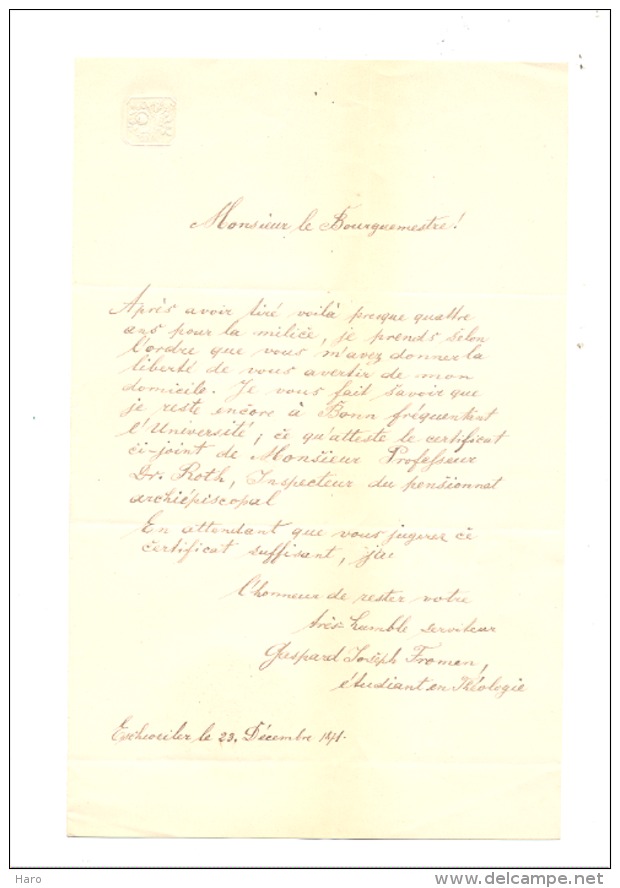 Monsieur le Bourguemestre!
Après avoir tiré voilà presque quattre
ans pour la milice, je prends selon
l'ordre que vous m'avez donner la
liberté de vous avertir de mon
domicile. Je vous fait savoir que
je reste encore à Bonn fréquentant
l'Université; ce qu'atteste le certificat
ci-joint de Monsieur Professeur
Dr. Roth, Inspecteur du pensionnat
archiépiscopal
En attendant que vous jugerez ce
certificat suffisant, j'ai
l'honneur de rester votre
très-humble serviteur
Gaspard Joseph Fromen,
étudiant en Théologie
Eschweiler le 23. Décembre 141.
Haro
www.delcampe.net